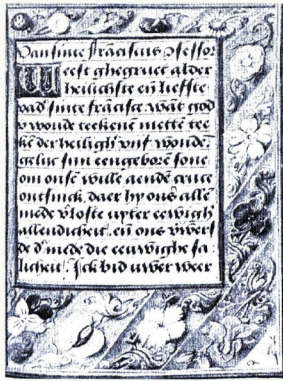 Van sinte frāciscus ꝯfessor
Weest ghegruet alder
heilichste eñ lieffte
vad' sinte frācisce. wāt god
v woude teekenē mettē tee
kē der heiligh' vijf wondē.
gelijc sijn eengeborē sone
om onsē wille aendē cruce
ontfinck. daer hy ons allē
mede v'loste vpter eewigh'
allendicheit. eñ ons v'werf
de d' mede die eeuwighe sa
licheit. Ick bid uwer weer